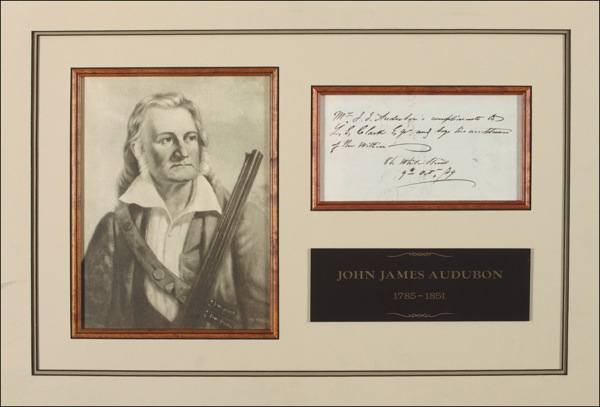 Mr. J. J. Audubon's compliments to
L. G. Clark Esqr and begs his acceptance
of the within
86 White Street
9th Oct,
JOHN JAMES AUDUBON
1785–1851